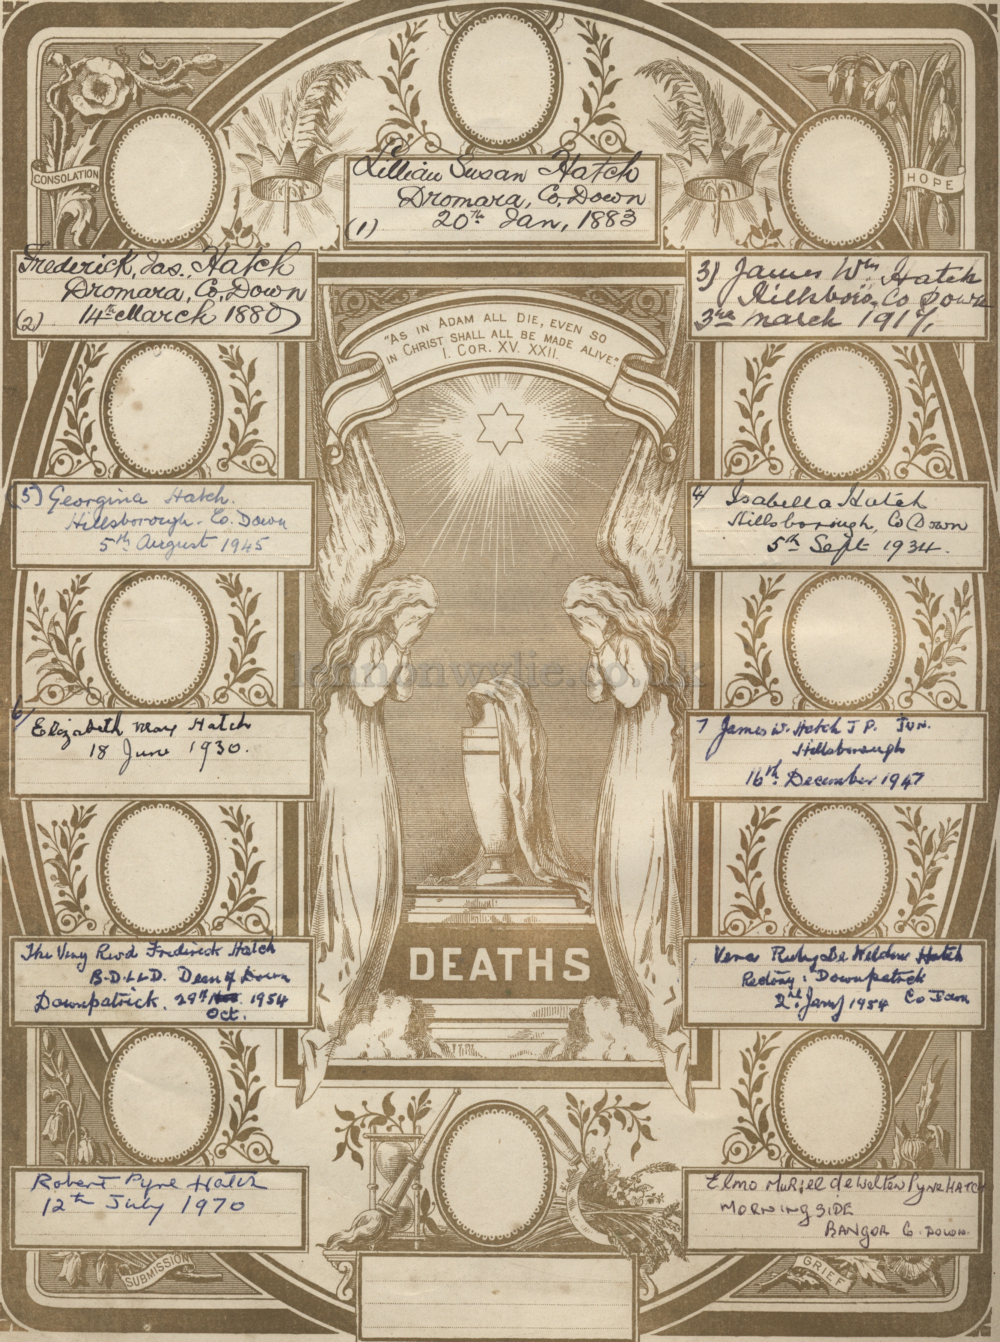 CONSOLATION
HOPE
Lillian Susan Hatch
Dromara, Co. Down
(1) 20th Jan, 1883
Frederick, Jas. Hatch
Dromara, Co. Down
(2) 14th March 1880
3) James Wm Hatch
Hillsboro, Co Down
3rd March 1917
"AS IN ADAM ALL DIE, EVEN SO
IN CHRIST SHALL ALL BE MADE ALIVE"
I. COR. XV. XXII.
(5) Georgina Hatch.
Hillsborough. Co. Down
5th August 1945
4/ Isabella Hatch
Hillsborough, Co Down
5th Sept 1934.
lennonwylie.co.uk
6/ Elizabeth May Hatch
18 June 1930.
7 James W. Hatch J P. Jun.
Hillsborough
16th December 1947
The Very Revd Frederick Hatch
B.D.L.L.D. Dean of Down
Downpatrick. 29th 1954
Oct.
Vera Ruby De Hatch
Rectory Downpatrick
2nd Jany 1954 Co Down
DEATHS
Robert Pyne Hatch
12th July 1970
Elmo Muriel deWelton Pyne HATCH
MORNINGSIDE
BANGOR Co. DOWN.
SUBMISSION
GRIEF